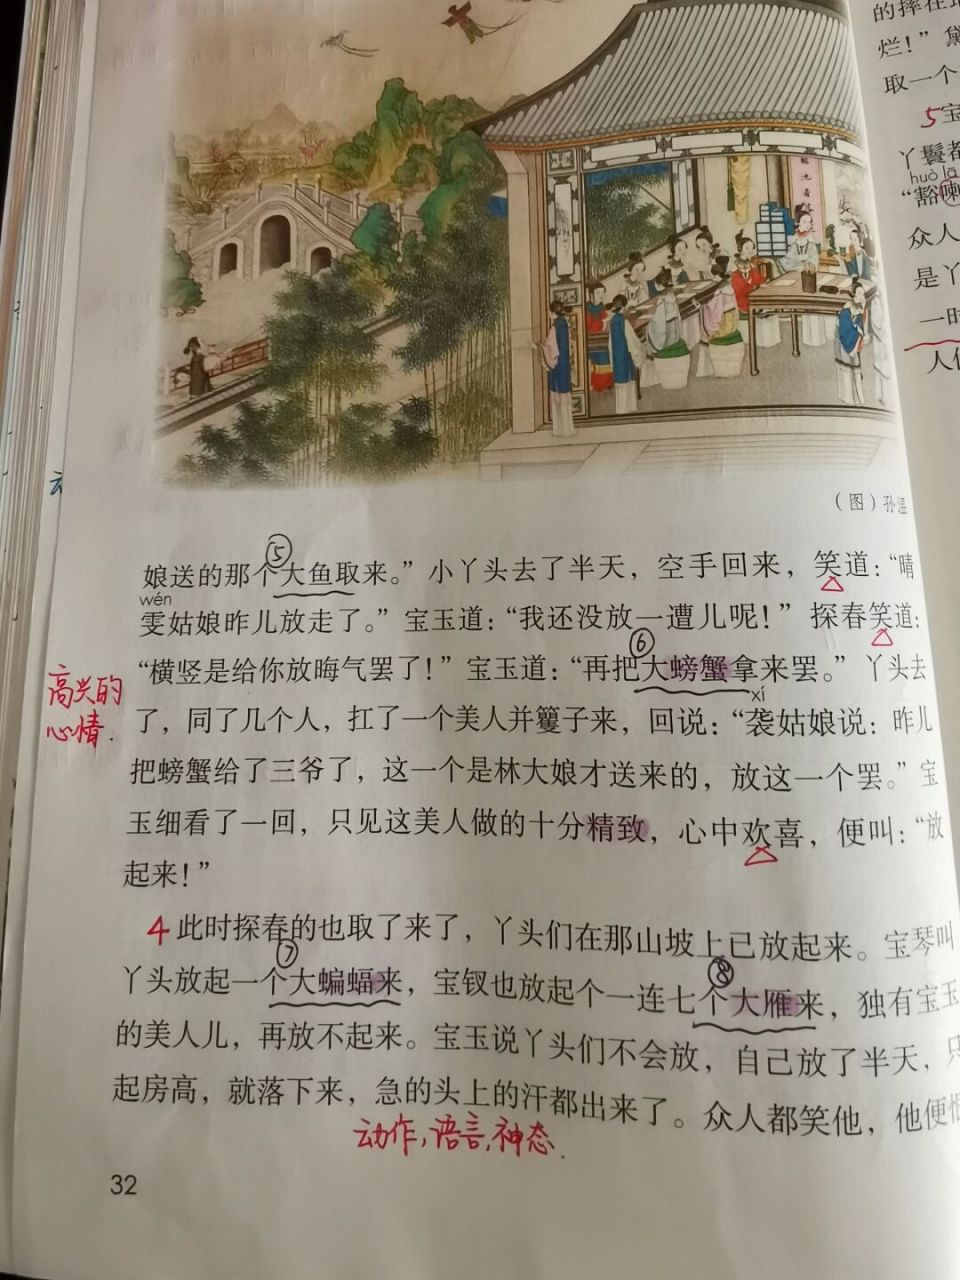 （图）孙温
⑤
娘送的那个大鱼取来。”小丫头去了半天，空手回来，笑道：“晴
wén
雯姑娘昨儿放走了。”宝玉道：“我还没放一遭儿呢！”探春笑道：
⑥
“横竖是给你放晦气罢了！”宝玉道：“再把大螃蟹拿来罢。”丫头去
高兴的
心情.
xí
了，同了几个人，扛了一个美人并籰子来，回说：“袭姑娘说：昨儿
把螃蟹给了三爷了，这一个是林大娘才送来的，放这一个罢。”宝
玉细看了一回，只见这美人做的十分精致，心中欢喜，便叫：“放
起来！”
4 此时探春的也取了来了，丫头们在那山坡上已放起来。宝琴叫
⑦ ⑧
丫头放起一个大蝙蝠来，宝钗也放起个一连七个大雁来，独有宝玉
的美人儿，再放不起来。宝玉说丫头们不会放，自己放了半天，只
起房高，就落下来，急的头上的汗都出来了。众人都笑他，他便恨
动作,语言,神态.
32
的摔在
烂！”黛
取一个
5 宝
丫鬟都
huò lā
“豁喇
众人
是丫
一时
人